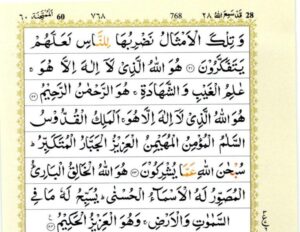 28 قد سمع الله ٢٨ 768 ٧٦٨ 60 الممتحنة ٦٠
وَ تِلْكَ الْاَمْثَالُ نَضْرِبُهَا لِلنَّاسِ لَعَلَّهُمْ
يَتَفَكَّرُوْنَ ﴿٢١﴾ هُوَ اللّٰهُ الَّذِيْ لَاۤ اِلٰهَ اِلَّا هُوَ ۚ
عٰلِمُ الْغَيْبِ وَ الشَّهَادَةِ ۚ هُوَ الرَّحْمٰنُ الرَّحِيْمُ ﴿٢٢﴾
هُوَ اللّٰهُ الَّذِيْ لَاۤ اِلٰهَ اِلَّا هُوَ ۚ اَلْمَلِكُ الْقُدُّوْسُ
السَّلٰمُ الْمُؤْمِنُ الْمُهَيْمِنُ الْعَزِيْزُ الْجَبَّارُ الْمُتَكَبِّرُ ؕ
سُبْحٰنَ اللّٰهِ عَمَّا يُشْرِكُوْنَ ﴿٢٣﴾ هُوَ اللّٰهُ الْخَالِقُ الْبَارِئُ
الْمُصَوِّرُ لَهُ الْاَسْمَآءُ الْحُسْنٰى ؕ يُسَبِّحُ لَهٗ مَا فِي
السَّمٰوٰتِ وَ الْاَرْضِ ۚ وَ هُوَ الْعَزِيْزُ الْحَكِيْمُ ﴿٢٤﴾